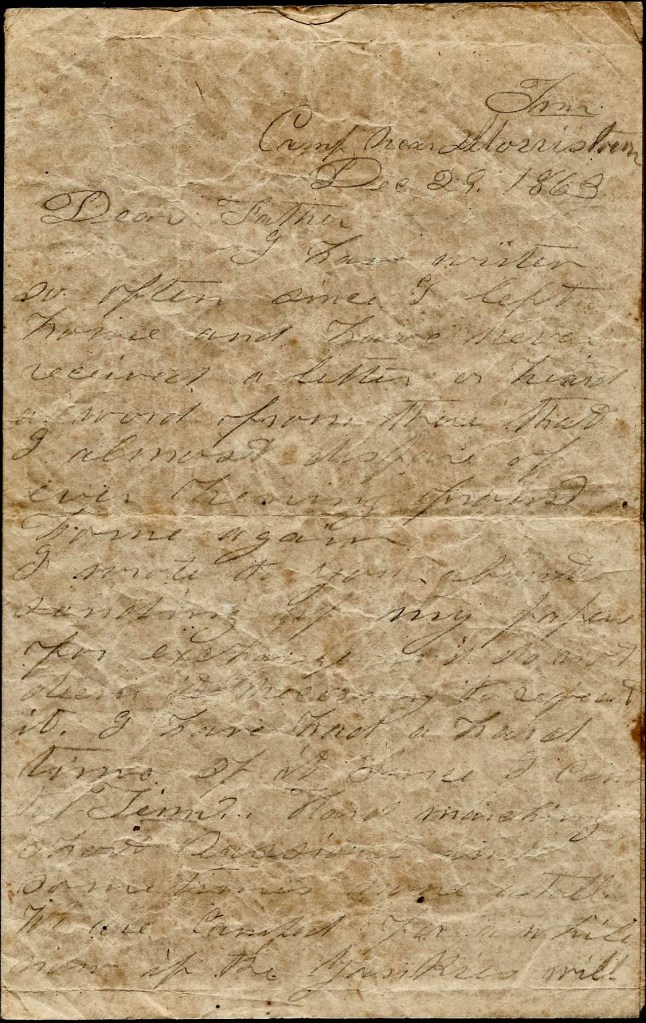 Tenn
Camp Near Morristown
Dec 29. 1863
Dear Father
I have writen
so often since I left
home and have never
received a letter or heard
a word from there that
I almost dispare of
ever hearing from
home again
I wrote to you about
sending my papers
for exchange and do not
deem it necessary to repeat
it. I have had a hard
time of it since I came
to Tenn. Hard marching
short rasions and
some times none atall.
We are camped for a while
now if the Yankies will